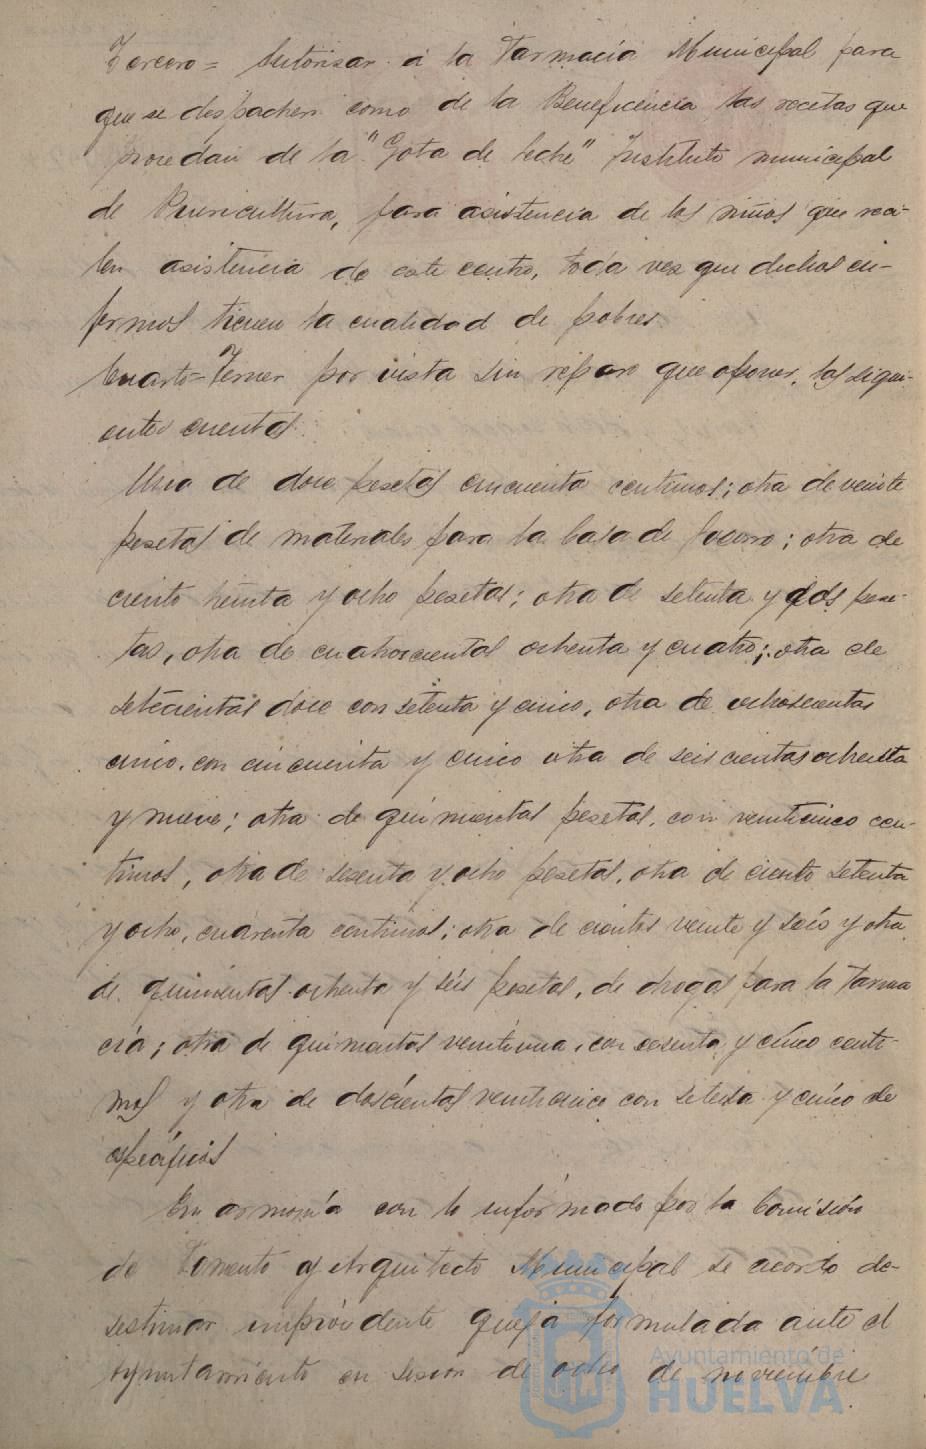 Tercero = Autorisar á la Farmacia Municipal para
que se despachen como de la Beneficencia las recetas que
procedan de la "Gota de leche" Instituto municipal
de Puericultura, para asistencia de los niños que reci-
ben asistencia de este centro, toda vez que dichos en-
fermos tienen la cualidad de pobres.
Cuarto = Tener por vista sin reparo que oponer, las sigui-
entes cuentas.
Una de doce pesetas cincuenta centimos; otra de veinte
pesetas de materiales para la Casa de Socorro; otra de
ciento treinta y ocho pesetas; otra de setenta y dos pese-
tas, otra de cuatrocientas ochenta y cuatro; otra de
setecientas doce con setenta y cinco, otra de ochoscientas
cinco, con cincuenta y cinco otra de seiscientas ochenta
y nueve; otra de quinientas pesetas, con veinticinco cen-
timos, otra de sesenta y ocho pesetas, otra de ciento setenta
y ocho, cuarenta centimos; otra de cientos veinte y seis y otra
de quinientas ochenta y séis pesetas, de drogas para la Farma
cia; otra de quinientas veintiuna, con sesenta y cinco centi-
mos y otra de doscientas veinticinco con setenta y cinco de
específicos
En armonía con lo informado por la Comisión
de Fomento y Arquitecto Municipal se acordó de-
sestimar improcedente queja formulada ante el
Ayuntamiento en sesión de ocho de noviembre
Ayuntamiento de
HUELVA